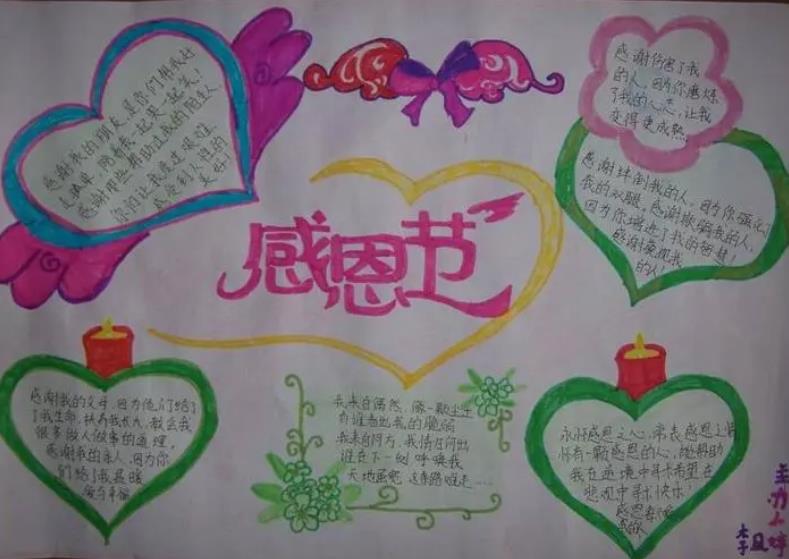 感谢我的朋友,是你们帮我赶
走孤单,陪着我一起哭一起笑!
感谢那些帮助过我的陌生人,
你们让我度过艰难,
感受到人性的
美好!
感恩节
感谢伤害了我
的人,因为你磨炼
了我的心志,让我
变得更成熟。
感谢绊倒我的人,因为你强化了
我的双腿。感谢欺骗我的人,
因为你增进了我的智慧!
感谢藐视我
的人!
感谢我的父母,因为他们给了
了我生命,抚养我长大,教会我
很多做人做事的道理。
感谢我的亲人,因为你
们给了我温暖
与幸福
我来自偶然,像一颗尘土
有谁看出我的脆弱
我来自何方,我情归何处
谁在下一刻呼唤我
天地虽宽,这条路难走……
永怀感恩之心,常表感恩之情
怀有一颗感恩的心,能帮助
我在逆境中寻求希望,在
悲观中寻求快乐!
感恩
主办
李